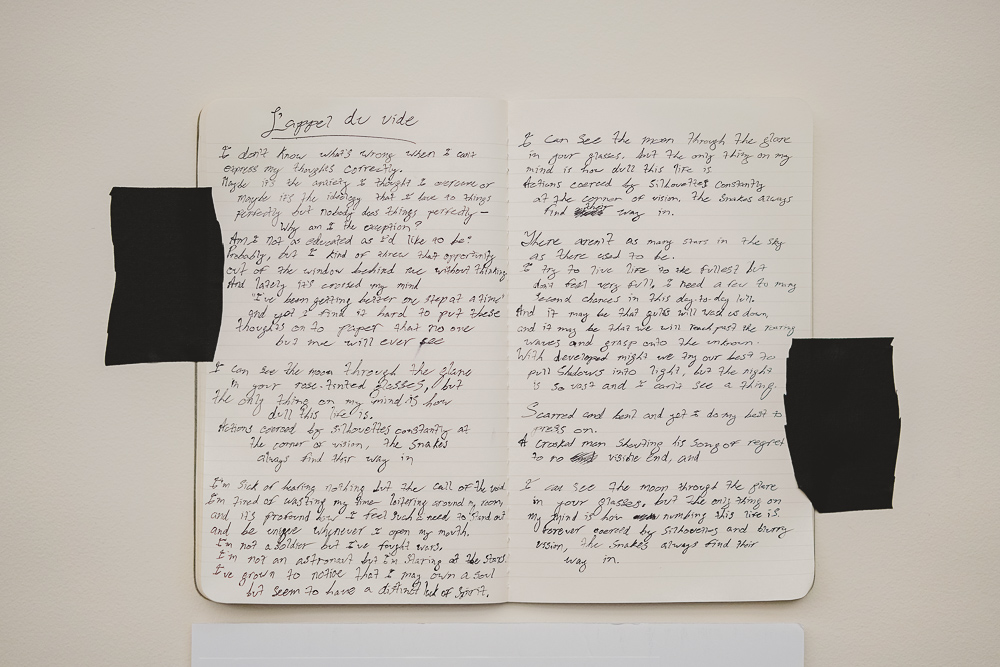 L'appel du vide
I don't know what's wrong when I can't
express my thoughts correctly.
Maybe it's the anxiety I thought I overcame or
maybe it's the ideology that I have to things
perfectly but nobody does things perfectly –
Why am I the exception?
Am I not as educated as I'd like to be?
Probably, but I kind of threw that opportunity
out of the window behind me without thinking
And lately it's crossed my mind
"I've been getting better one step at a time"
and yet I find it hard to put these
thoughts on to paper that no one
but me will ever see
I can see the moon through the glare
in your rose-tinted glasses, but
the only thing on my mind is how
dull this life is.
Actions coerced by silhouettes constantly at
the corner of vision, the snakes
always find their way in
I'm sick of hearing nothing but the call of the void
I'm tired of wasting my time loitering around my room,
and it's profound how I feel such a need to stand out
and be unique whenever I open my mouth.
I'm not a soldier but I've fought wars.
I'm not an astronaut but I'm staring at the stars.
I've grown to notice that I may own a soul
but seem to have a distinct lack of spirit.
I can see the moon through the glare
in your glasses. but the only thing on my
mind is how dull this life is
Actions coerced by silhouettes constantly
at the corner of vision. the snakes always
find their way in.
There aren't as many stars in the sky
as there used to be.
I try to live life to the fullest but
don't feel very full. I need a few to many
second chances in this day-to-day lull.
And it may be that gulfs will wash us down,
and it may be that we will reach past the roaring
waves and grasp onto the unknown.
With developed might we try our best to
pull shadows into light, but the night
is so vast and I can't see a thing.
Scarred and bent and yet I do my best to
press on.
A crooked man shouting his song of regret
to no visible end, and
I can see the moon through the glare
in your glasses, but the only thing on
my mind is how numbing this life is.
Forever coerced by silhouettes and blurry
vision, the snakes always find their
way in.